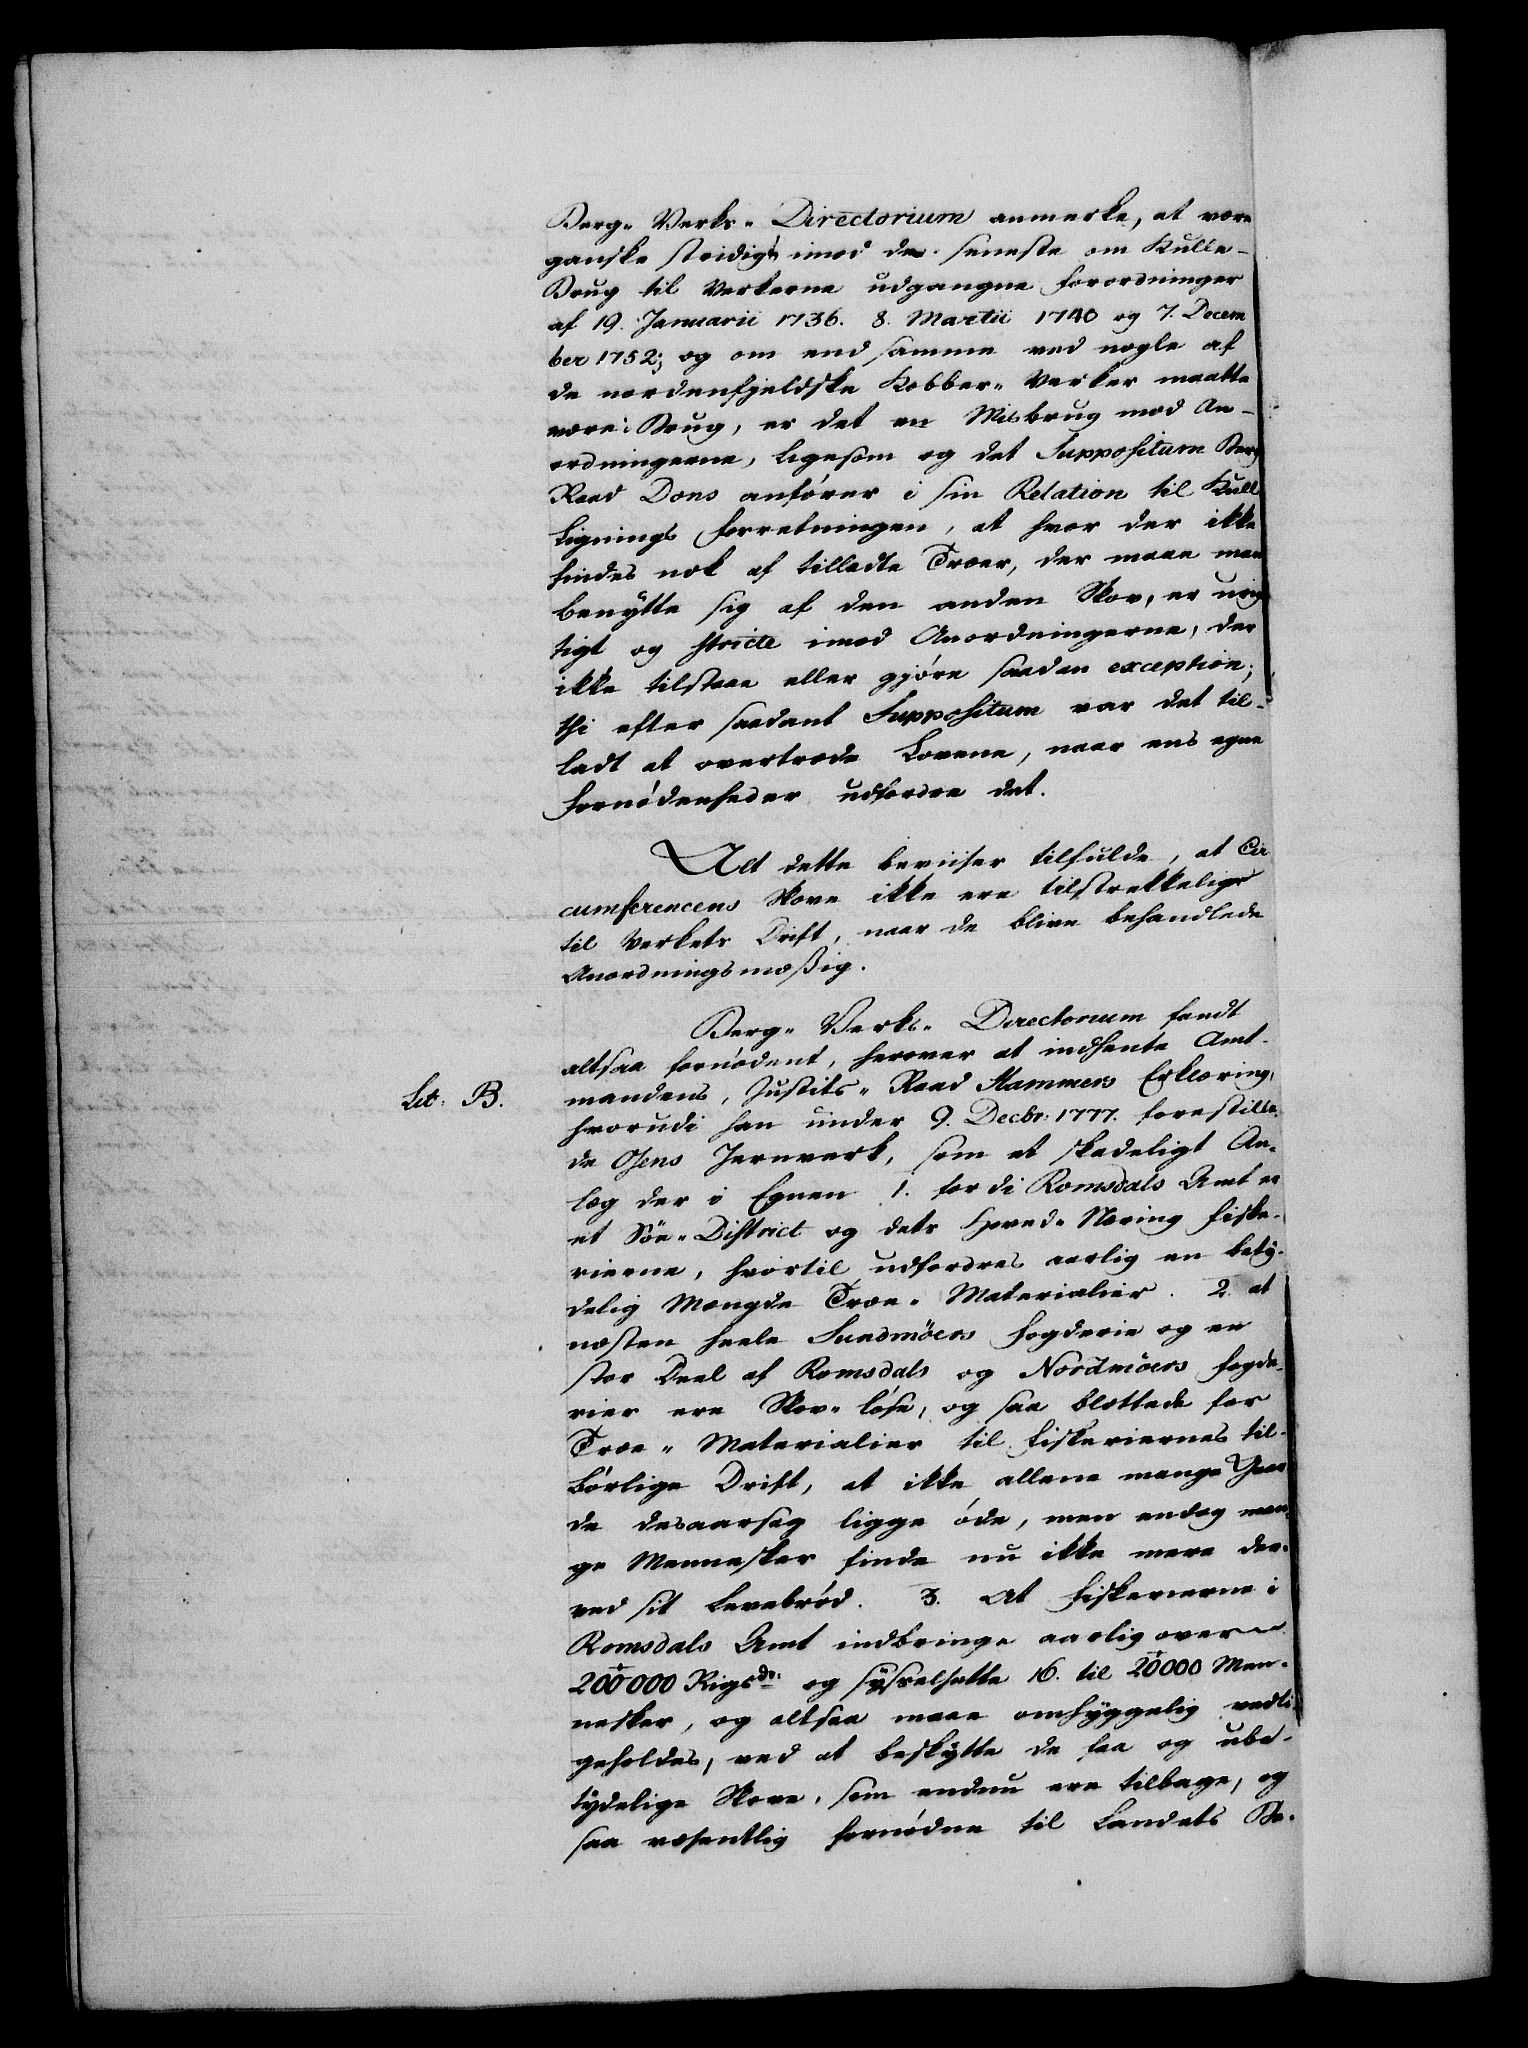 Berg- Verks- Directorium anmerke, at være
ganske stridigt imod de seneste om Kulle-
Brug til Verkerne udgangne Forordninger
af 19. Januarii 1736. 8. Martii 1740 og 7. Decem
ber 1752; og om end samme ved nogle af
de nordenfjeldske Kobber- Verker maatte
være i Brug, er det en Misbrug mod An-
ordningerne, ligesom og det Suppositum Berg
Raad Dons anfører i sin Relation til Kull
Lignings Forretningen, at hvor der ikke
findes nok af tilladte Træer, der maae man
benytte sig af den anden Skov, er urig
tigt og stricte imod Anordningerne, der
ikke tilstaae eller gjøre saadan exception;
thi efter saadant Suppositum var det til-
ladt at overtræde Lovene, naar ens egne
Fornødenheder udfordre det.
Alt dette beviiser tilfulde, at Cir
cumferencens Skove ikke ere tilstrekkelige
til Verkets Drift, naar de blive behandlede
Anordningsmæßig.
Berg- Verks- Directorium fandt
altsaa fornødent, herover at indhente Amt-
Lit: B. mandens, Justits- Raad Hammers Erklæring,
hvorudi han under 9. Decbr: 1777. forestille-
de Osens Jernverk, som et skadeligt An-
læg der i Egnen 1. fordi Romsdals Amt er
et Söe- District og dets Hoved- Næring Fiske-
rierne, hvortil udfordres aarlig en bety-
delig Mængde Træe- Materialier. 2. at
næsten heele Sundmöers Fogderie og en
stor Deel af Romsdals og Nordmöers Fogde-
rier ere Skov- løse, og saa blottede for
Træe- Materialier til Fiskeriernes til-
børlige Drift, at ikke allene mange Gaar
de desaarsag ligge øde, men endog man-
ge Mennesker finde nu ikke mere der-
ved sit Levebrød. 3. At Fiskerierne i
Romsdals Amt indbringe aarlig over
200000 Rigsdr: og sysselsatte 16. til 20000 Men-
nesker, og altsaa maae omhyggelig vedli-
geholdes, ved at beskytte de faa og ube-
tydelige Skove, som endnu ere tilbage, og
saa væsentlig fornødne til Landets Be-